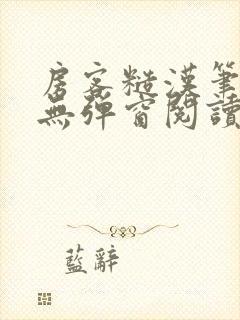 房客糙漢筆
無彈窗閱讀
藍辭